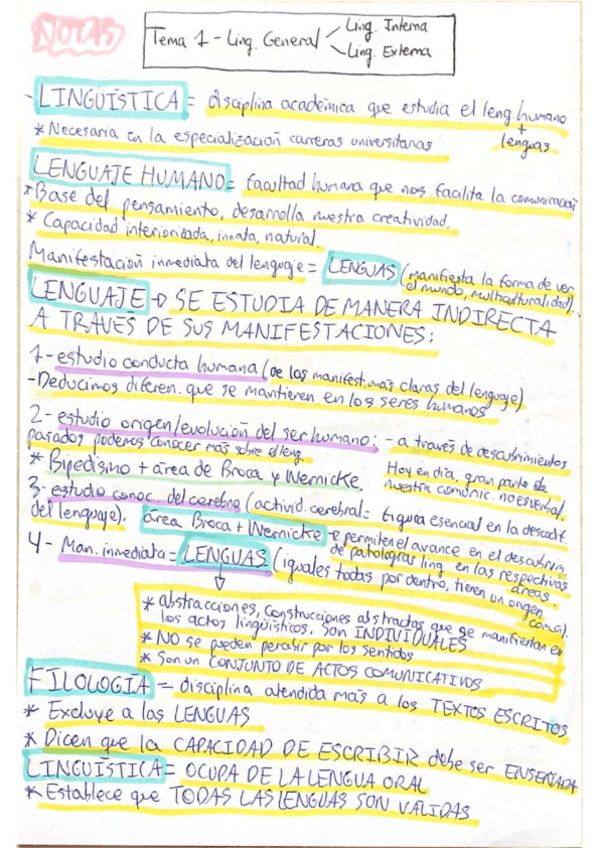 NOTAS
Tema 1 - Ling. General
Ling. Interna
Ling. Externa
- LINGÜÍSTICA = disciplina académica que estudia el leng. humano
+ lenguas
* Necesaria en la especialización carreras universitarias
LENGUAJE HUMANO = facultad humana que nos facilita la comunicación
* Base del pensamiento, desarrolla nuestra creatividad.
* Capacidad interiorizada, innata, natural.
Manifestación inmediata del lenguaje = LENGUAS (manifiesta la forma de ver
el mundo, multiculturalidad).
LENGUAJE → SE ESTUDIA DE MANERA INDIRECTA
A TRAVÉS DE SUS MANIFESTACIONES:
1 - estudio conducta humana (de las manifest. más claras del lenguaje)
- Deducimos diferen. que se mantienen en los seres humanos
2 - estudio origen/evolución del ser humano: - a través de descubrimientos
pasados podemos conocer más sobre el leng.
* Bipedismo + área de Broca y Wernicke.
Hoy en día, gran parte de
nuestra comunic. no es verbal.
3 - estudio conoc. del cerebro (activid. cerebral = figura esencial en la descodif.
del lenguaje). área Broca + Wernicke → permiten el avance en el descubrim.
de patologías ling. en las respectivas
áreas.
4 - Man. inmediata = LENGUAS (iguales todas por dentro, tienen un origen
común).
* abstracciones, construcciones abstractas que se manifiestan en
los actos lingüísticos, son INDIVIDUALES
* NO se pueden percibir por los sentidos
* Son un CONJUNTO DE ACTOS COMUNICATIVOS
FILOLOGÍA = disciplina atendida más a los TEXTOS ESCRITOS
* Excluye a las LENGUAS
* Dicen que la CAPACIDAD DE ESCRIBIR debe ser ENSEÑADA
LINGÜÍSTICA = OCUPA DE LA LENGUA ORAL
* Establece que TODAS LAS LENGUAS SON VÁLIDAS